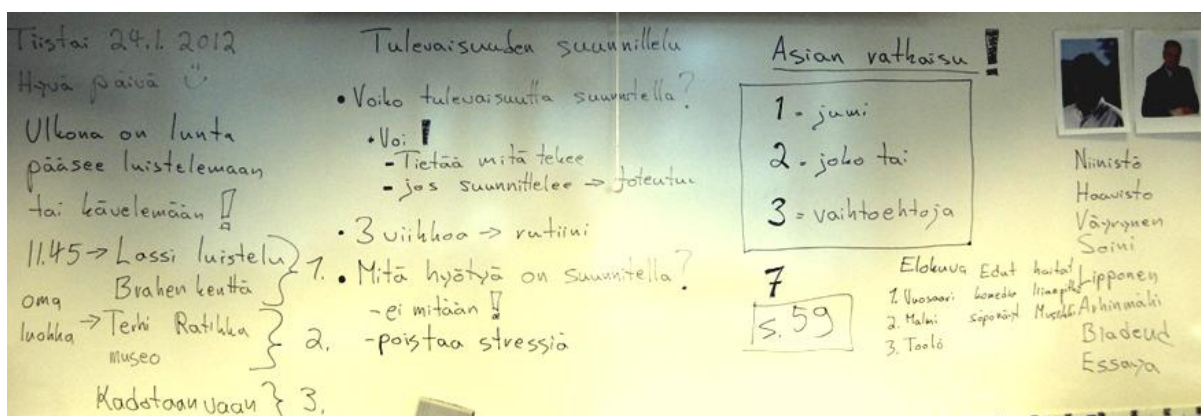 Tiistai 24.1. 2012
Hyvä päivä
Ulkona on lunta
pääsee luistelemaan
tai kävelemään!
11.45 → Lassi luistelu } 1.
Brahen kenttä
oma luokka → Terhi Ratikka } 2.
museo
Kadotaan vaan } 3.
Tulevaisuuden suunnittelu
• Voiko tulevaisuutta suunnitella?
• Voi!
- Tietää mitä tekee
- jos suunnittelee → toteutuu
• 3 viikkoa → rutiini
• Mitä hyötyä on suunnitella?
- ei mitään!
- poistaa stressiä
Asian ratkaisu!
1 = jumi
2 = joko tai
3 = vaihtoehtoja
7
s. 59
Elokuva Edut haitat
1. Vuosaari komedia
2. Malmi Musiikki
3. Töölö
Niinistö
Haavisto
Väyrynen
Soini
Lipponen
Arhinmäki
Biaudeud
Essayja